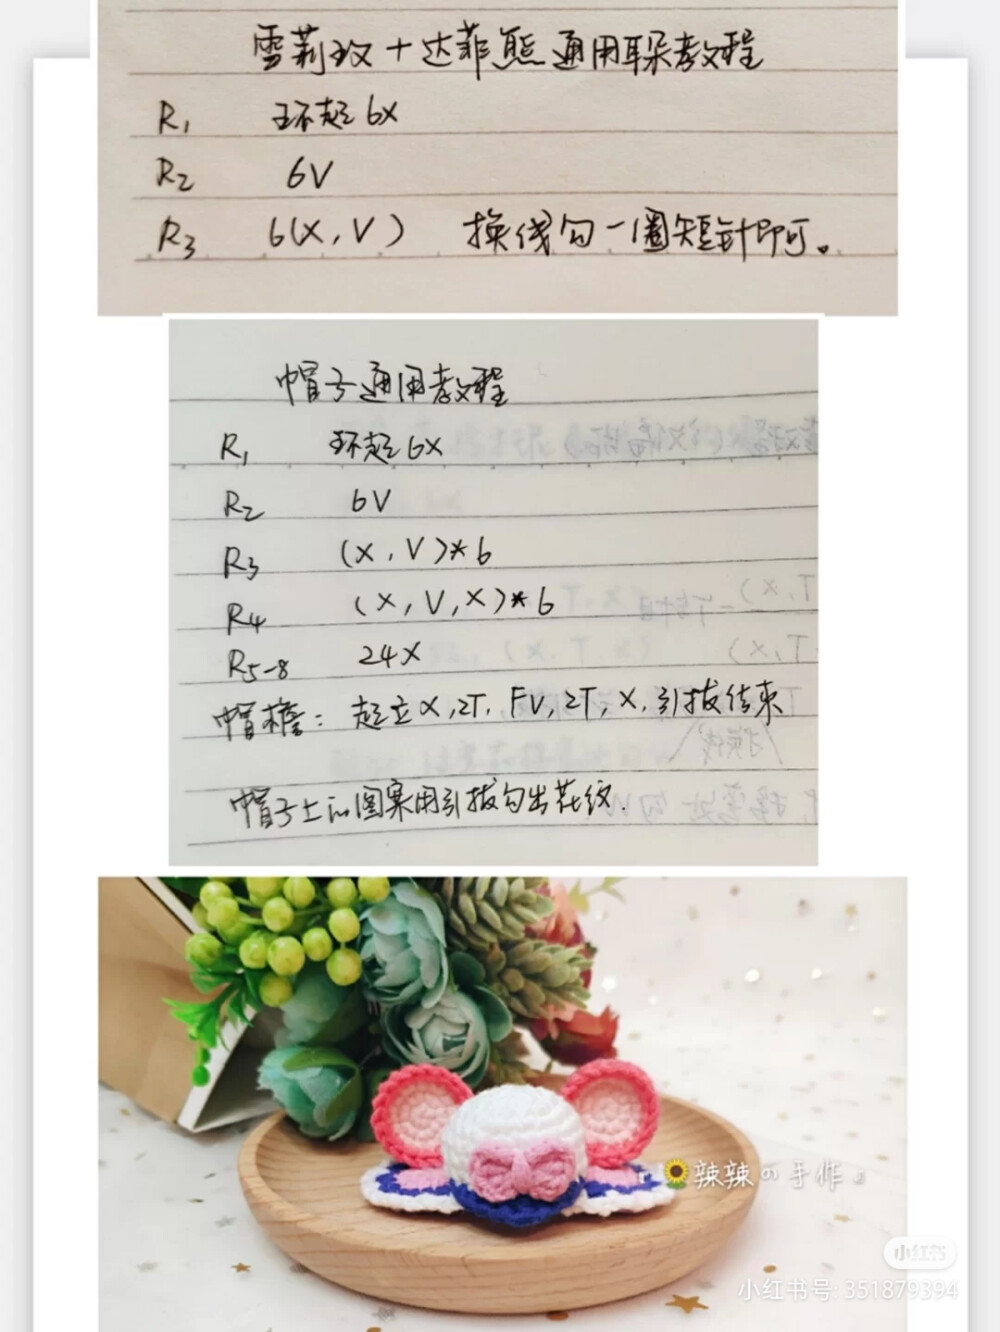 雪莉玫+达菲熊通用耳朵教程
R1 环起6X
R2 6V
R3 6(X,V) 换线勾一圈短针即可。
帽子通用教程
R1 环起6X
R2 6V
R3 (X,V)*6
R4 (X,V,X)*6
R5-8 24X
帽檐:起立X,2T,FV,2T,X,引拔结束
帽子上的图案用引拔勾出花纹.
辣辣の手作。
小红书
小红书号:351879394